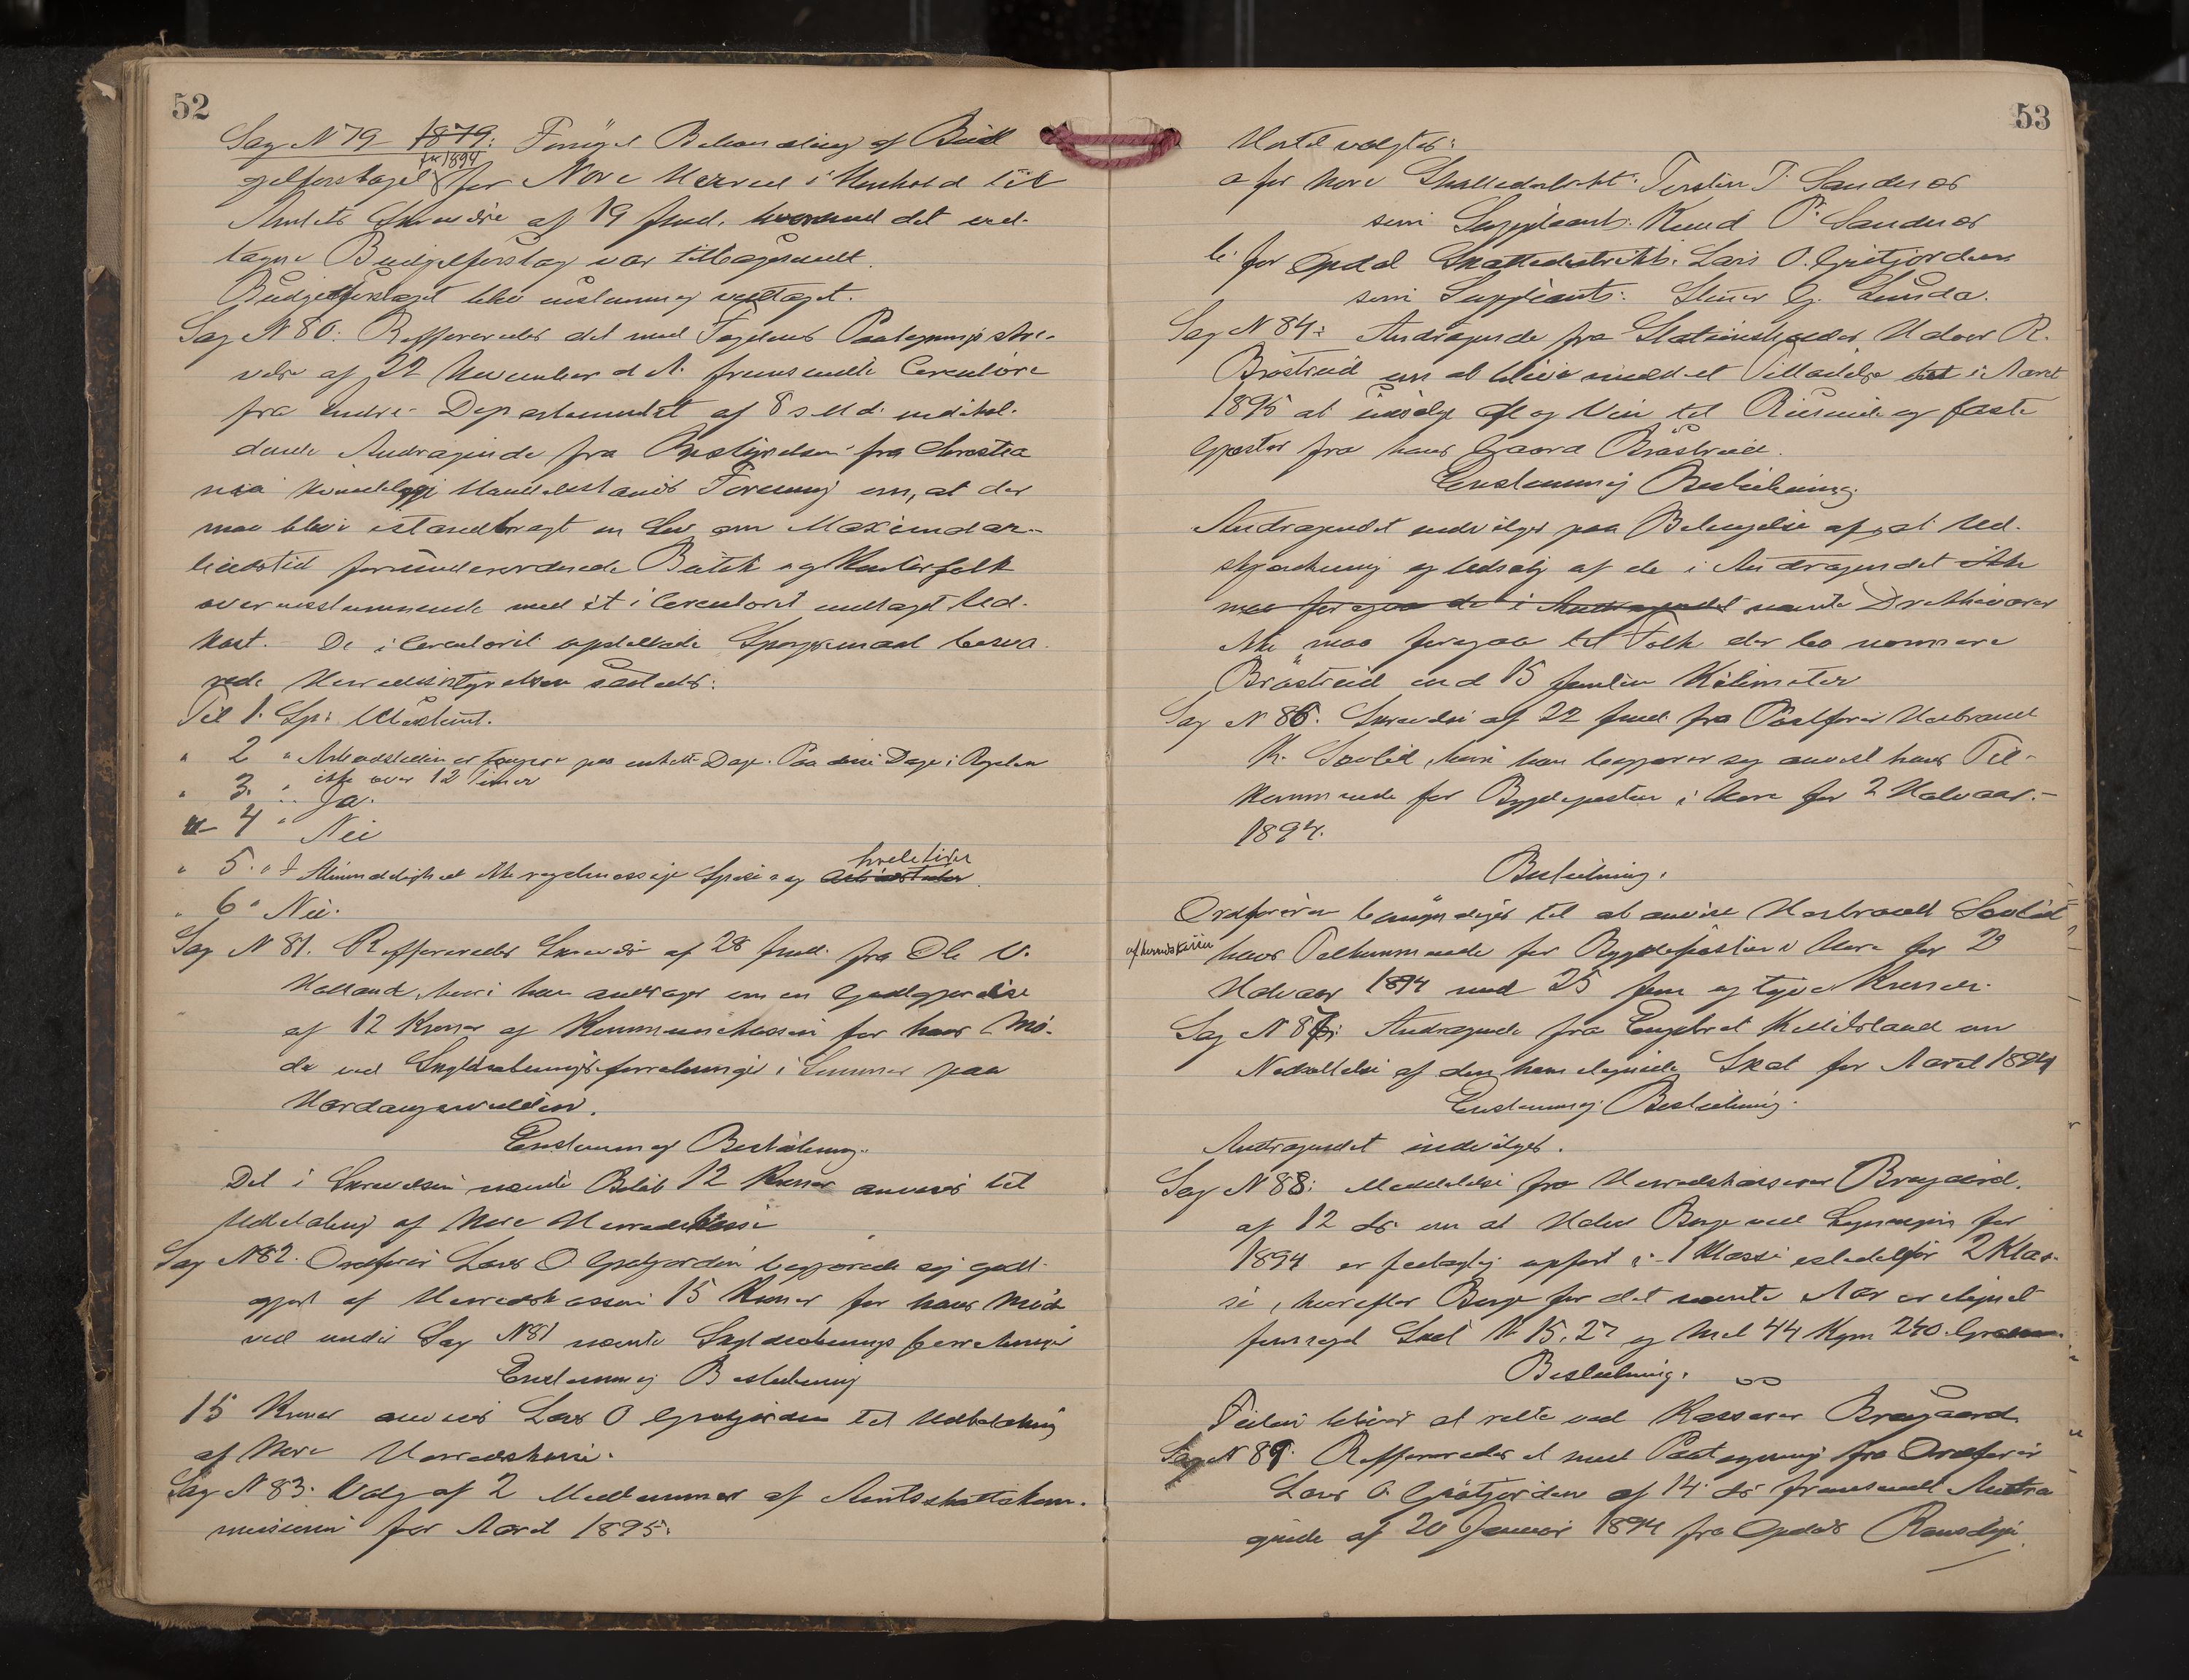 52
Sag N 79 1879: Fornyet Behandling af Bud
getforslaget for 1894 for Nore Herred i Henhold til
Amtets Skrivelse af 19 f.md. hvormed det ved-
tagne Budgetforslag var tilbagesendt.
Budgetforslaget blev enstemmig vedtaget.
Sag N 80. Reffereredes det med Fogdens Paategningsskri-
velse af 22 November d.A. fremsendte Circulære
fra Indre-Departementet af 8 s.Md. indehol-
dende Andragende fra Bestyrelsen fra Christia
nia Handelsstands Forening om, at der
maa blive istandbragt en Lov om Maximalar-
beidstid for underordnede Butik og Kontorfolk
overensstemmende med et i Circulæret indtaget Ud-
kast. De i Circulæret opstillede Spørgsmaal besva-
rede Herredsstyrelsen saaledes:
Til 1. Sp: Ubestemt.
" 2 " Arbeidstiden er længere paa enkelte Dage. Paa disse Dage i Regelen
ikke over 12 Timer
" 3. " Ja.
" 4 " Nei
" 5. " I Almindelighed ikke regelmæssige Spise og Arbeidstider hviletider
" 6 " Nei.
Sag N 81. Reffereredes Skrivelse af 28 f.md. fra Ole V.
Halland, hvori han andrager om en Godtgjørelse
af 12 Kroner af Kommunekassen for hans Mø-
de ved Skyldsætningsforretninger i Sommer paa
Hardangervidden.
Enstemmig Beslutning.
Det i Skrivelsen nævnte Beløb 12 Kroner anvises til
Udbetaling af Nore Herredskasse
Sag N 82. Ordfører Lars O Grøtjorden begjærede sig godt-
gjort af Herredskassen 15 Kroner for hans Møde
ved under Sag N 81 nævnte Skyldsætnings forretninger
Enstemmig Beslutning
15 Kroner anvises Lars O Grøtjorden til Udbetaling
af Nore Herredskasse.
Sag N 83. Valg af 2 Medlemmer af Amtsskattekom-
missionen for Aaret 1895.
53
Hertil valgtes:
a for Nore Skattedistrikt: Torstein T. Sandnes
som Suppleant: Knud P. Sandnes
b. for Opdal Skattedistrikt. Lars O. Grøtjorden
som Suppleant: Stener G. Lunda.
Sag N 84: Andragende fra Stationsholder Halvor R.
Brøstrud om at blive meddelt Tilladelse til i Aaret
1895 at udsælge Øl og Vin til Reisende og faste
Gjæster fra hans Gaard Brøstrud.
Enstemmig Beslutning.
Andragendet indvilges paa Betingelse af, at Ud-
skjænkning og Udsalg af de i Andragendet ikke
maa foregaa de i Andragendet nævnte Drikkevarer
ikke maa foregaa til Folk der bo nærmere
Brøstrud end 15 femten Kilometer
Sag N 86. Skrivelse af 22 f.md. fra Postfører Herbrand
K. Sorlid, hvori han begjærer sig anvist hans Til-
kommende for Bygdeposten i Nore for 2 Halvaar.-
1894.
Beslutning.
Ordføreren bemyndiges til at anvise Herbrand Sorlid
af herredskassen hans Tilkommende for Bygdeposten i Nore for 2
Halvaar 1894 med 25 fem og tyve Kroner.
Sag N 87: Andragende fra Engebret Killitsland om
Nedsættelse af den ham ilignede Skat for Aaret 1894
Enstemmig Beslutning.
Andragendet indvilges.
Sag N 88: Meddelelse fra Herredskasserer Bragaard.
af 12 ds. om at Halvor Berge ved Ligningen for
1894 er feilagtig opført i 1 Klasse istedetfor 2 Klas-
se, hvorefter Berge for det nævnte Aar er ilignet
formeget Skat Kr 15.27 og Mel 44 Kgm 240 Gram
Beslutning.
Feilen bliver at rette ved Kasserer Bragaard
Sag N 89. Reffereredes et med Paategning fra Ordfører
Lars O. Grøtjorden af 14 ds. fremsendt Andra
gende af 20 Januar 1894 fra Opdals